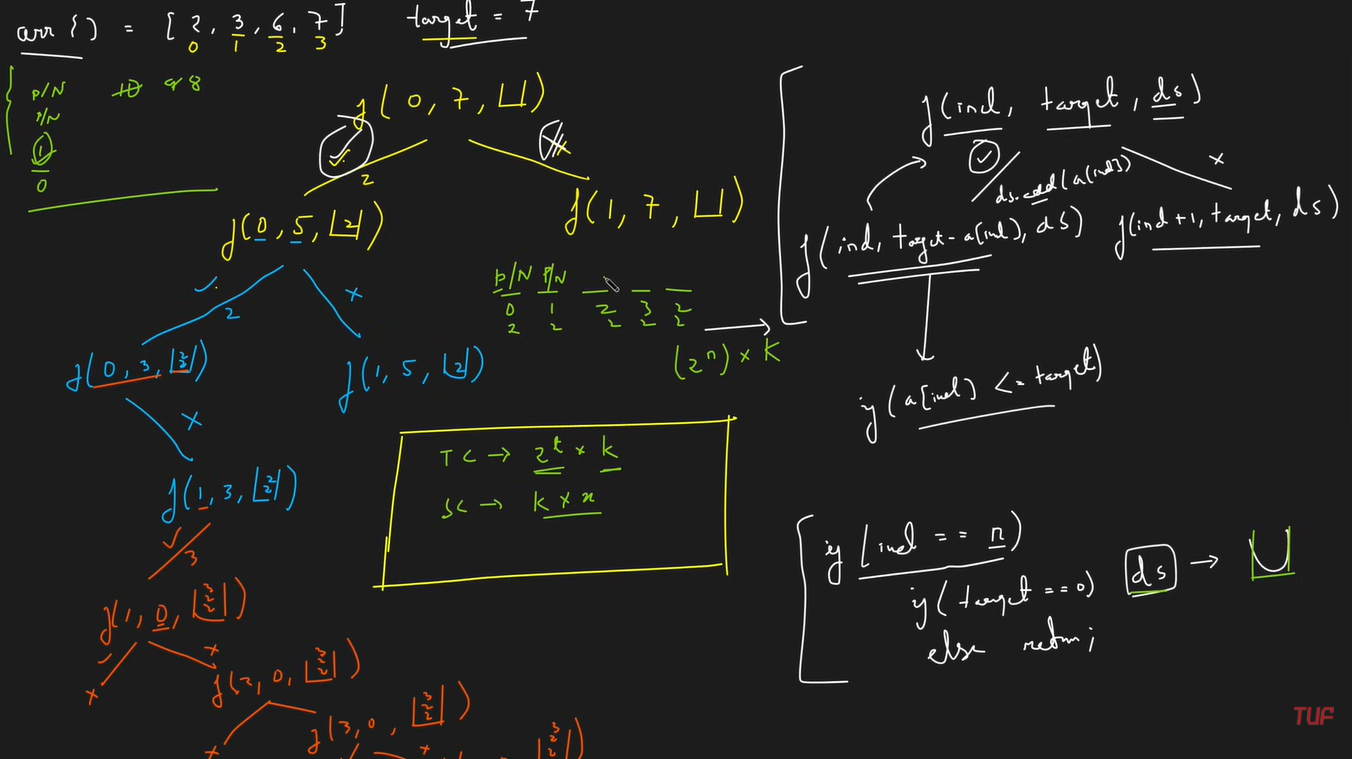 arr {} = [ 2, 3, 6, 7 ]
0 1 2 3
target = 7
P/N
P/N
1
0
10 9 8
f(0, 7, ⌊⌋)
2
f(0, 5, ⌊2⌋)
f(1, 7, ⌊⌋)
2
x
f(0, 3, ⌊2 2⌋)
f(1, 5, ⌊2⌋)
x
f(1, 3, ⌊2 2⌋)
3
f(1, 0, ⌊3 2 2⌋)
x
x
f(2, 0, ⌊3 2 2⌋)
x
f(3, 0, ⌊3 2 2⌋)
x
3
2
2
P/N P/N
0 1 2 3 2
2 2 2 2 2
(2^n) × k
TC → 2^t × k
SC → k × x
f(ind, target, ds)
ds.add(a[ind])
x
f(ind, target-a[ind], ds)
f(ind+1, target, ds)
if (a[ind] <= target)
if (ind == n)
if (target == 0)
ds →
else return;
TUF